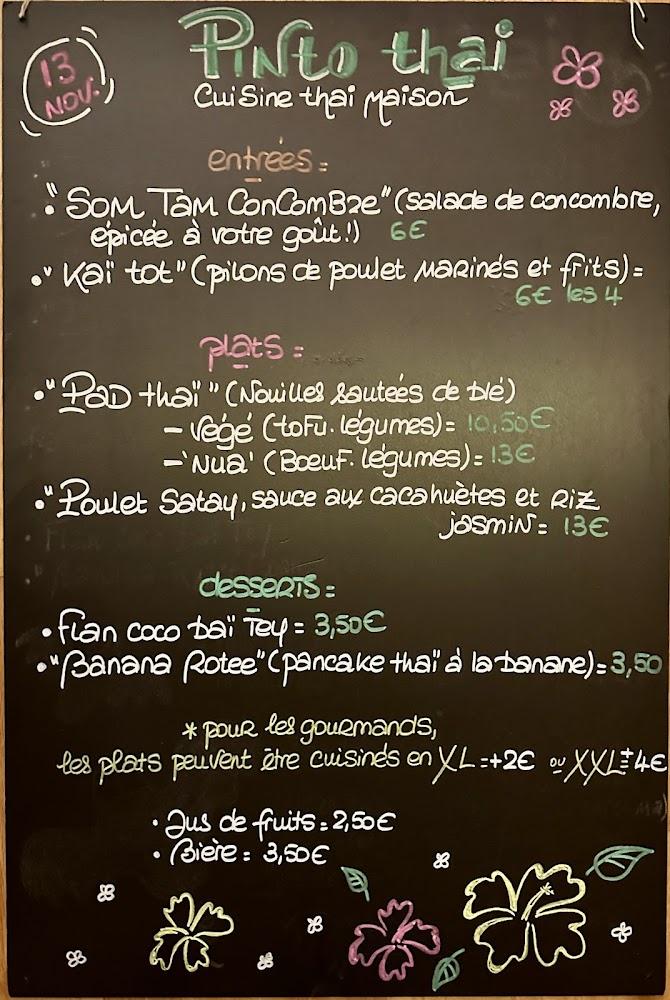 13
NOV.
Pinto thai
Cuisine thai Maison
entrées =
• "Som Tam ConComBre" (salade de concombre,
épicée à votre goût!) 6€
• "Kaï tot" (pilons de poulet Marinés et frits) =
6€ les 4
plats =
• "Pad thaï" (Nouilles sautées de blé)
- végé (tofu. légumes) = 10,50€
- 'Nua' (Bœuf. légumes) = 13€
• "Poulet Satay, sauce aux cacahuètes et Riz
jasmin = 13€
desserts =
• flan coco baï Tey = 3,50€
• "Banana Rotee" (pancake thaï à la banane) = 3,50
* pour les gourmands,
les plats peuvent être cuisinés en XL = +2€ ou XXL = +4€
• Jus de fruits = 2,50€
• Bière = 3,50€